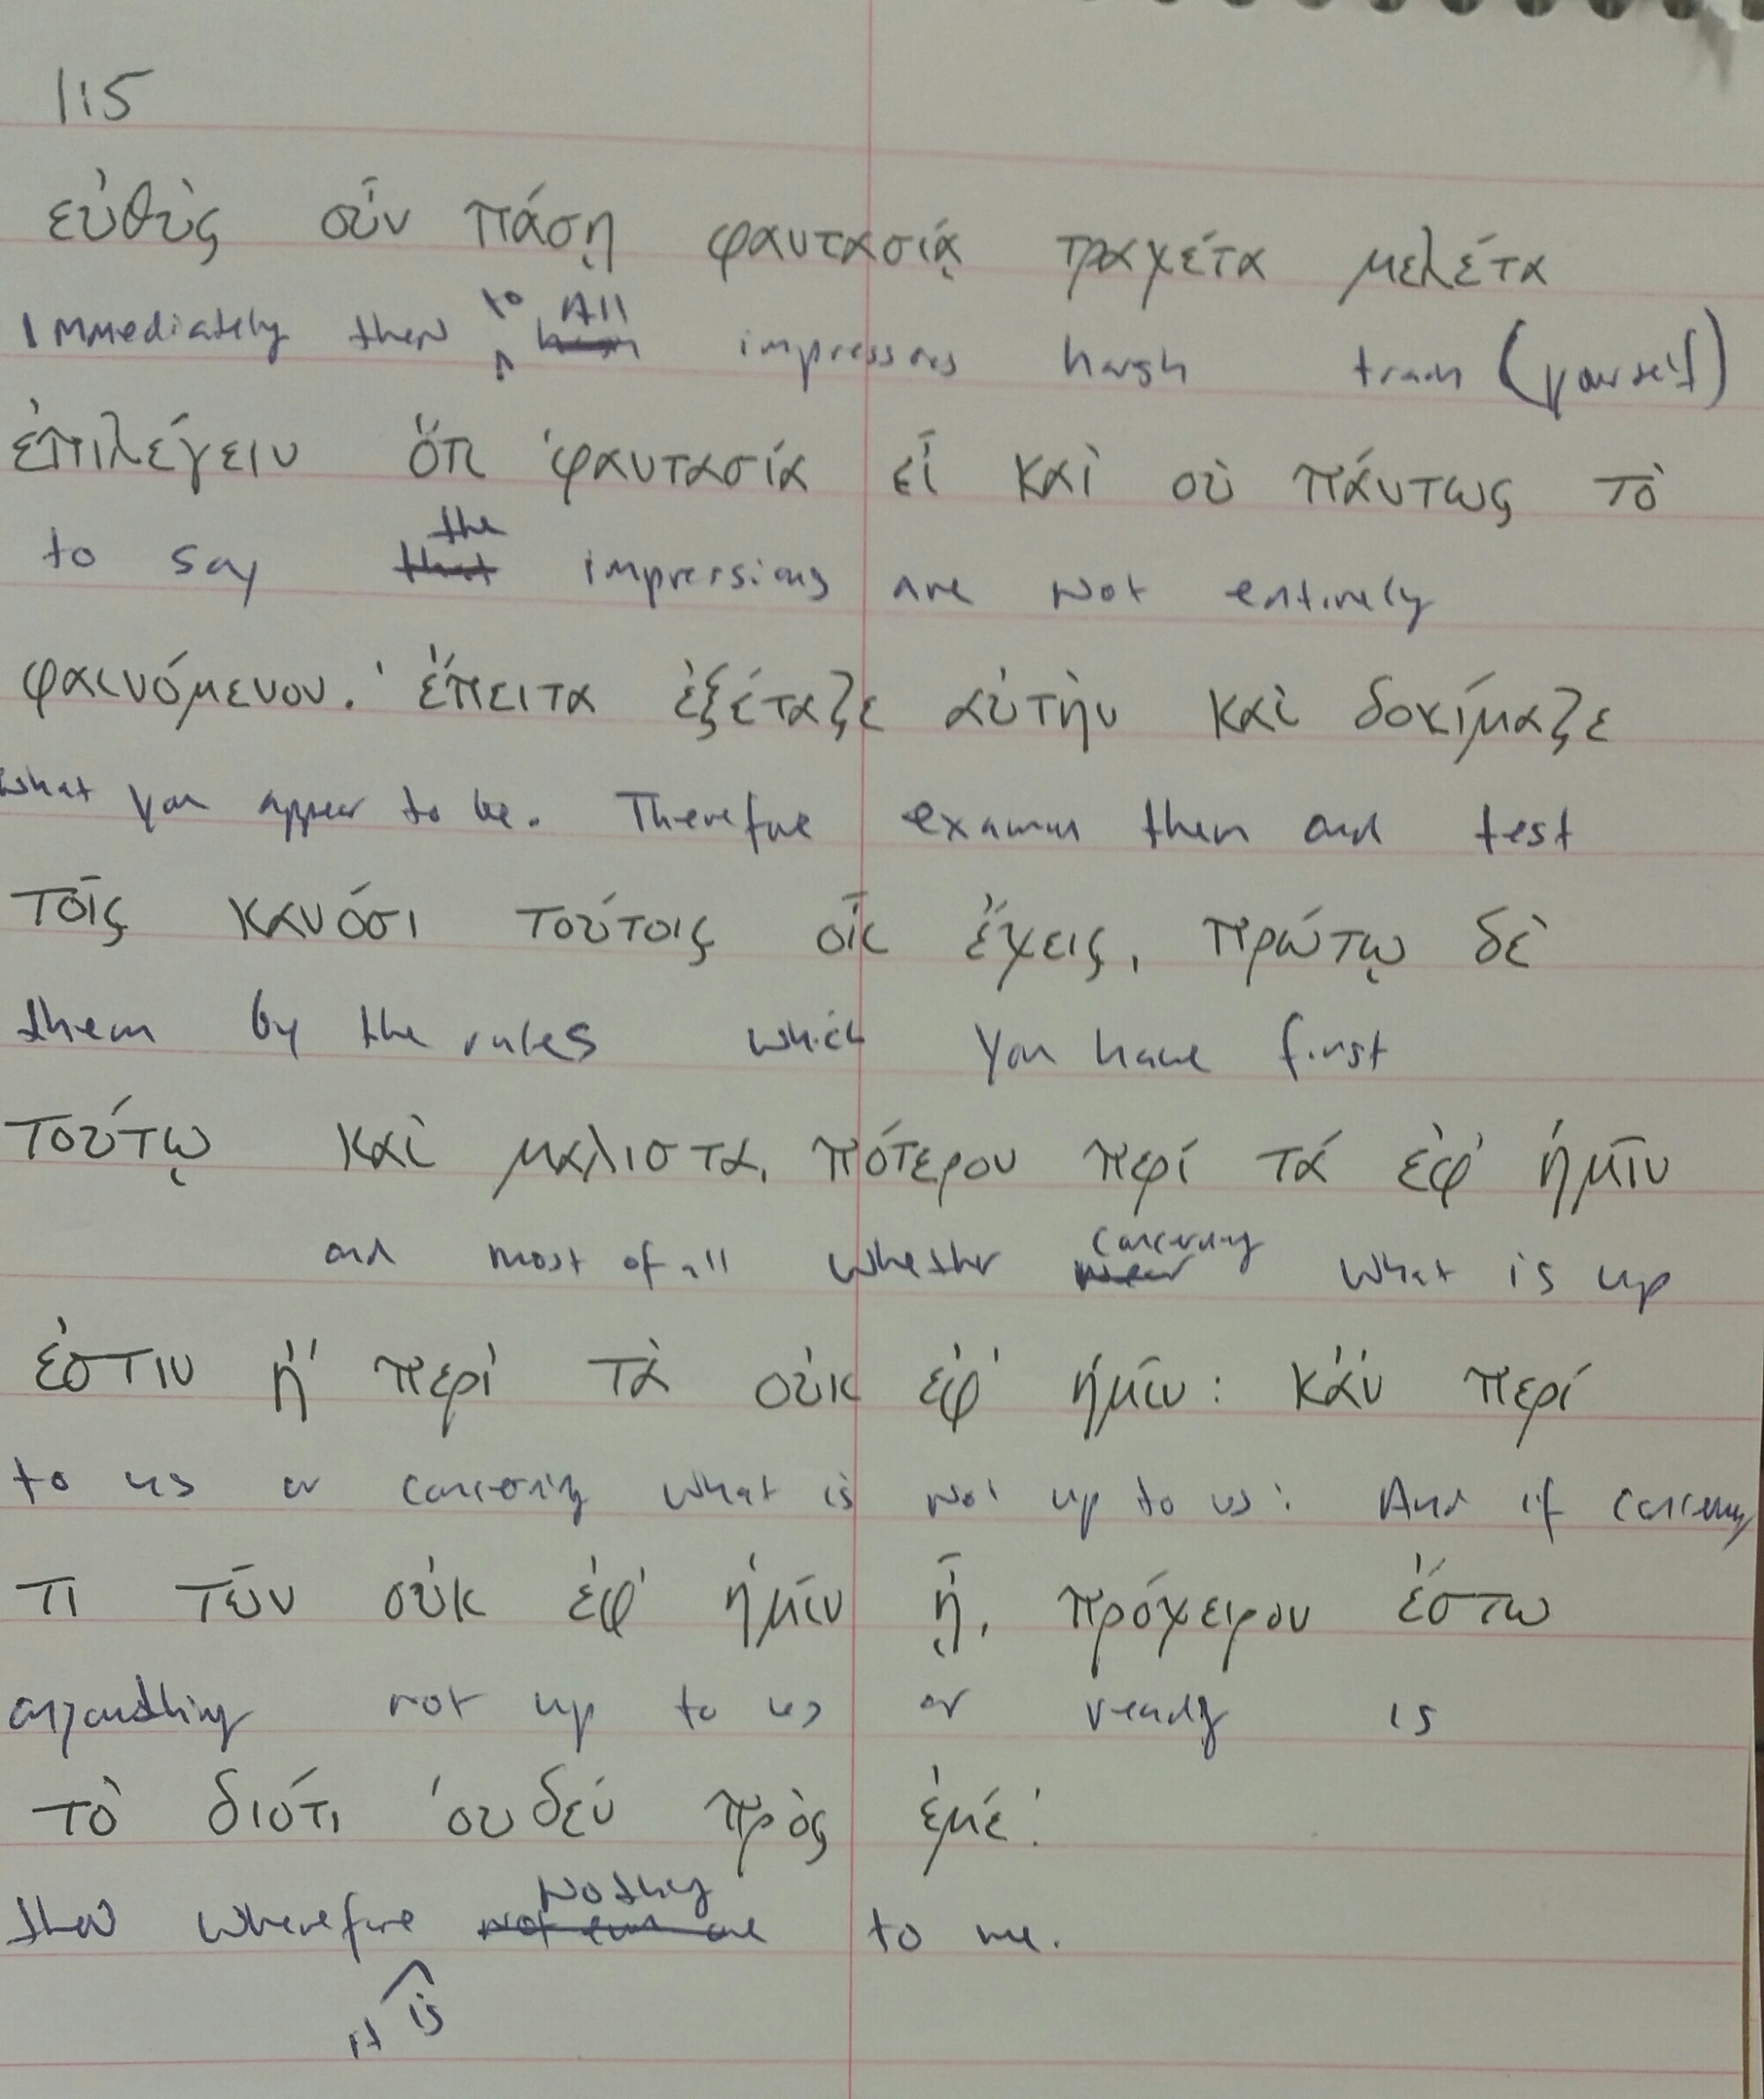 1:5
εὐθὺς οὖν πάσῃ φαντασίᾳ τραχείᾳ μελέτα
Immediately then to All impressions harsh train (yourself)
ἐπιλέγειν ὅτι 'φαντασία εἶ καὶ οὐ πάντως τὸ
to say the impressions are not entirely
φαινόμενον.' ἔπειτα ἐξέταζε αὐτὴν καὶ δοκίμαζε
what you appear to be. Therefore examine them and test
τοῖς κανόσι τούτοις οἷς ἔχεις, πρώτῳ δὲ
them by the rules which you have first
τούτῳ καὶ μαλιστα, πότερον περί τά ἐφ' ἡμῖν
and most of all whether concerning what is up
ἐστιν ἢ περὶ τὰ οὐκ ἐφ' ἡμῖν: κἂν περί
to us or concerning what is not up to us: And if concerning
τι τῶν οὐκ ἐφ' ἡμῖν ᾖ, πρόχειρον ἔστω
anything not up to us or ready is
τὸ διότι 'ουδέν πρὸς ἐμέ'.
that wherefore it is Nothing to me.